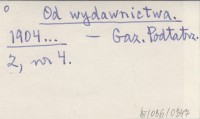 Od wydawnictwa.
1904... — Gaz. Podtatrz.
2, nr 4.